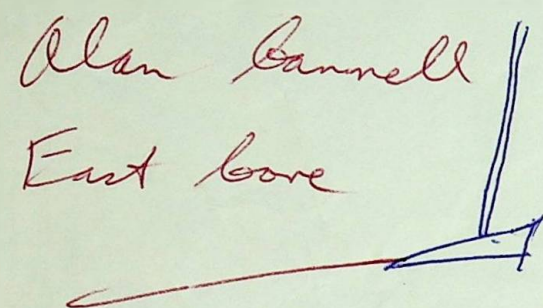 Alan Cannell
East Core